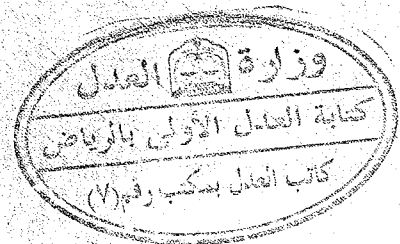 وزارة العدل
كتابة العدل الأولى بالرياض
كاتب العدل بمكتب رقم (٧)